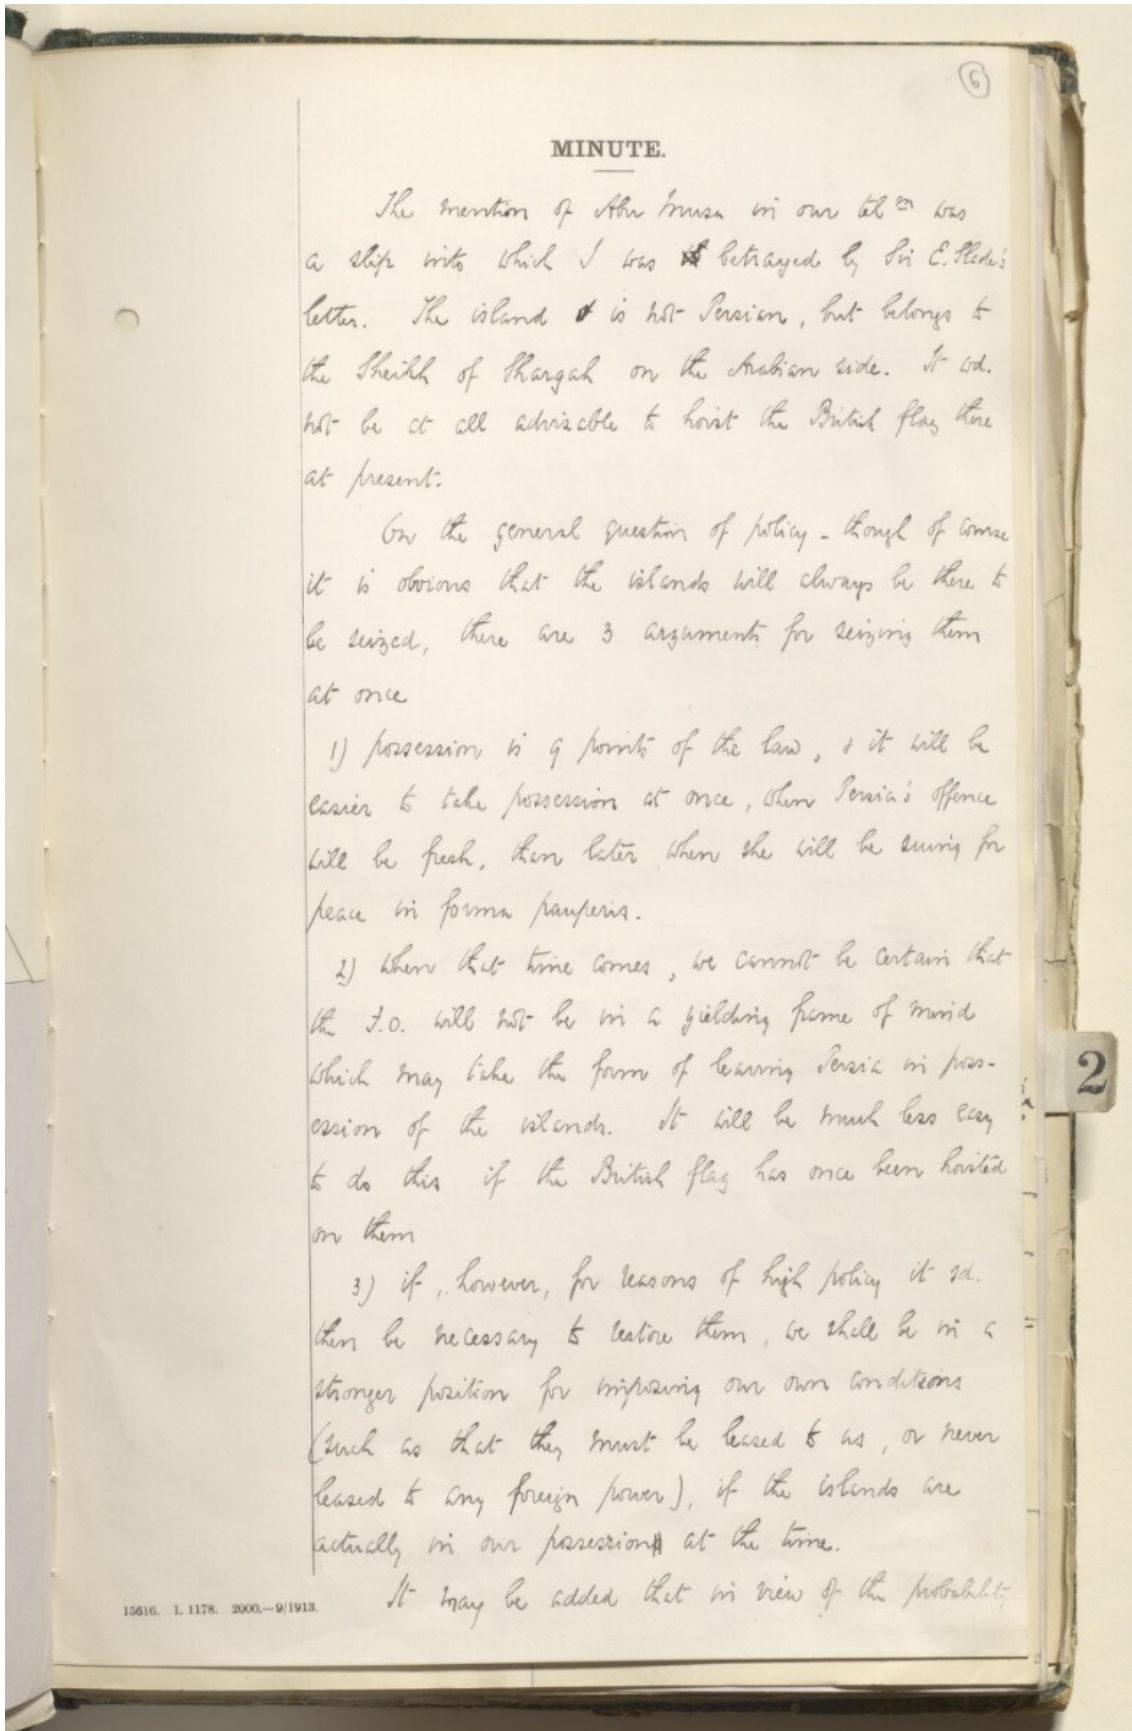 6
MINUTE.
The mention of Abu Musa in our tel^m was
a slip into which I was betrayed by Sir E. Slade's
letter. The island is not Persian, but belongs to
the Sheikh of Shargah on the Arabian side. It wd.
not be at all advisable to hoist the British flag there
at present.
On the general question of policy - though of course
it is obvious that the islands will always be there to
be seized, there are 3 arguments for seizing them
at once
1) possession is 9 points of the law, & it will be
easier to take possession at once, when Persia's offence
will be fresh, than later when she will be suing for
peace in forma pauperis.
2) when that time comes, we cannot be certain that
the F.O. will not be in a yielding frame of mind
which may take the form of leaving Persia in poss-
ession of the islands. It will be much less easy
to do this if the British flag has once been hoisted
on them
3) if, however, for reasons of high policy it sd.
then be necessary to restore them, we shall be in a
stronger position for imposing our own conditions
(such as that they must be leased to us, or never
leased to any foreign power), if the islands are
actually in our possession at the time.
It may be added that in view of the probability
15616. I. 1178. 2000.—9/1913.
2